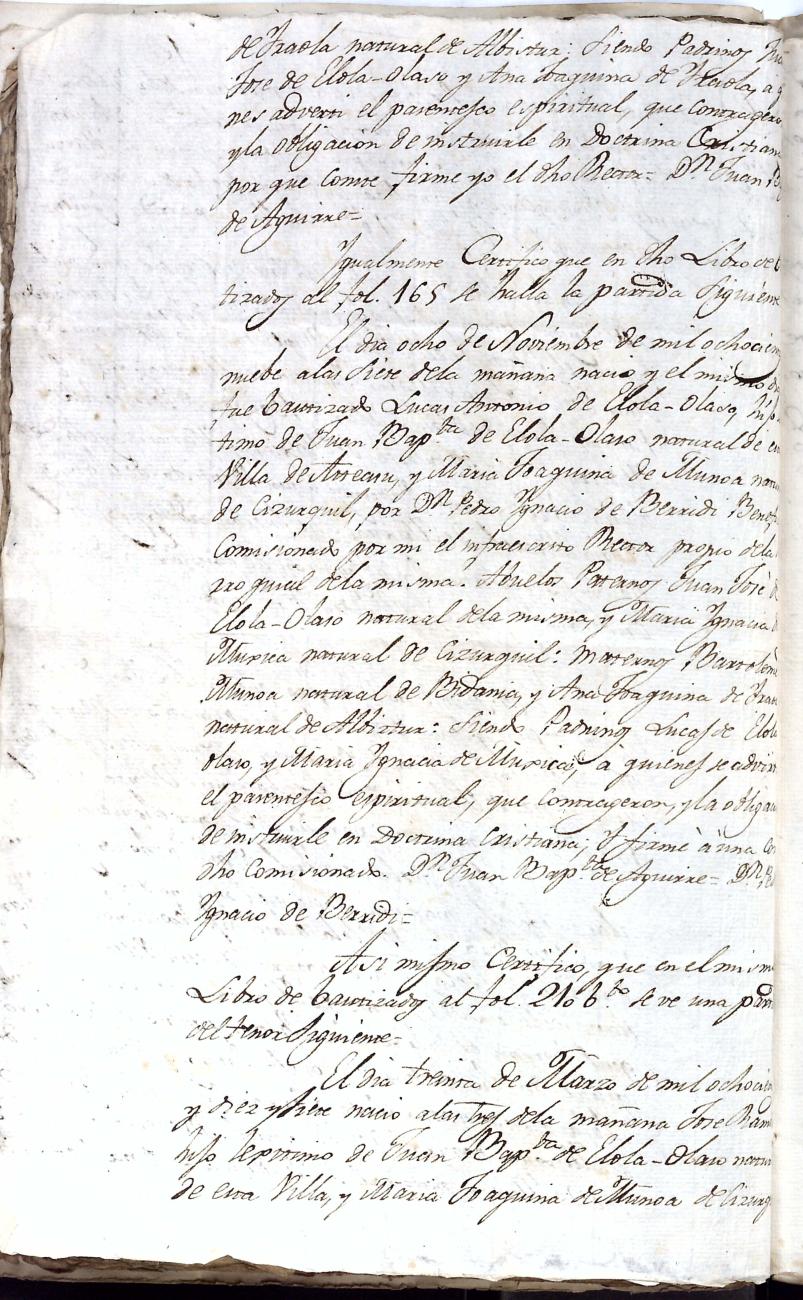 de Iraola natural de Albistur: siendo Padrinos
Jose de Elola-Olaso y Ana Joaquina de Iraola, a
nes adverti el parentesco espiritual, que contrageron
y la obligacion de instruirle en Doctrina Cristiana
por que conste firme yo el dho Rector= Dn. Juan
de Aguirre=
Igualmente Certifico que en dho Libro de
tizados al fol. 165 se halla la partida siguiente
El dia ocho de Noviembre de mil ochocien
nuebe alas siete dela mañana nacio y el mismo
fue bautizado Lucas Antonio de Elola-Olaso, hijo
timo de Juan Bapta. de Elola-Olaso natural de
Villa de Arteasu, y Maria Joaquina de Munoa natu
de Cizurquil, por Dn. Pedro Ignacio de Berridi Benef
Comisionado por mi el infraescrito Rector propio dela
rroquial dela misma. Abuelos Paternos Juan José
Elola-Olaso natural dela misma, y Maria Ignacia
Muxica natural de Cizurquil: Maternos Bartolomé
Munoa natural de Bidania, y Ana Joaquina de Irao
natural de Albiztur: siendo Padrinos Lucas de Elola
olaso, y Maria Ignacia de Muxica, a quienes se advirt
el parentesco espiritual, que contrageron, y la obligac
de instruirle en Doctrina Cristiana; y firmé à una con
dho Comisionado. Dn. Juan Bapta. de Aguirre= Dn.
Ignacio de Berridi=
Asi mismo Certifico, que en el mism
Libro de bautizados al fol. 210 bto se ve una part
del tenor siguiente=
El dia treinta de Marzo de mil ochocien
y diez y siete nacio alas tres dela mañana Jose Ram
hijo lexitimo de Juan Bapta. de Elola-Olaso natu
de esta Villa, y Maria Joaquina de Munoa de Cizurq